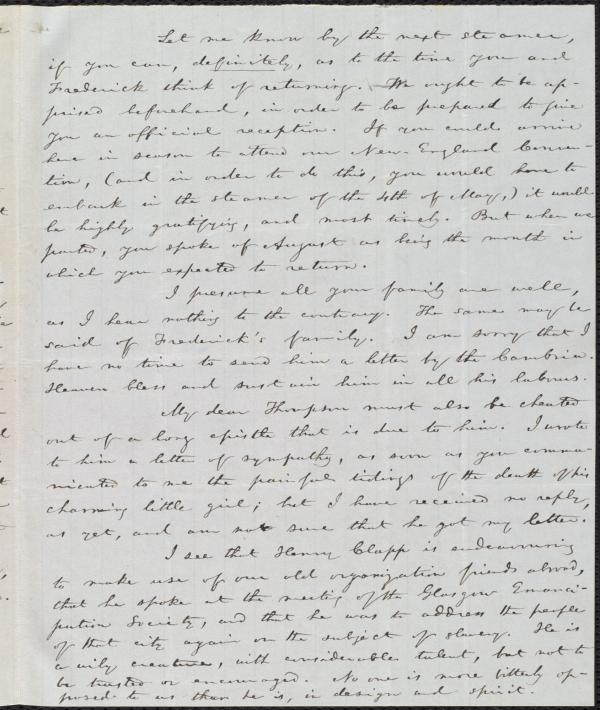 Let me know by the next steamer,
if you can, definitely, as to the time you and
Frederick think of returning. We ought to be ap-
prised beforehand, in order to be prepared to give
you an official reception. If you could arrive
here in season to attend our New-England Conven-
tion, (and in order to do this, you would have to
embark in the steamer of the 4th of May,) it would
be highly gratifying, and most timely. But when we
parted, you spoke of August as being the month in
which you expected to return.
I presume all your family are well,
as I hear nothing to the contrary. The same may be
said of Frederick's family. I am sorry that I
have no time to send him a letter by the Cambria.
Heaven bless and sustain him in all his labours.
My dear Thompson must also be cheated
out of a long epistle that is due to him. I wrote
to him a letter of sympathy, as soon as you commu-
nicated to me the painful tidings of the death of his
charming little girl; but I have received no reply,
as yet, and am not sure that he got my letter.
I see that Henry Clapp is endeavouring
to make use of our old organization friends abroad,
that he spoke at the meeting of the Glasgow Emanci-
pation Society, and that he was to address the people
of that city again on the subject of slavery. He is
a wily creature, with considerable talent, but not to
be trusted or encouraged. No one is more bitterly op-
posed to us than he is, in design and spirit.